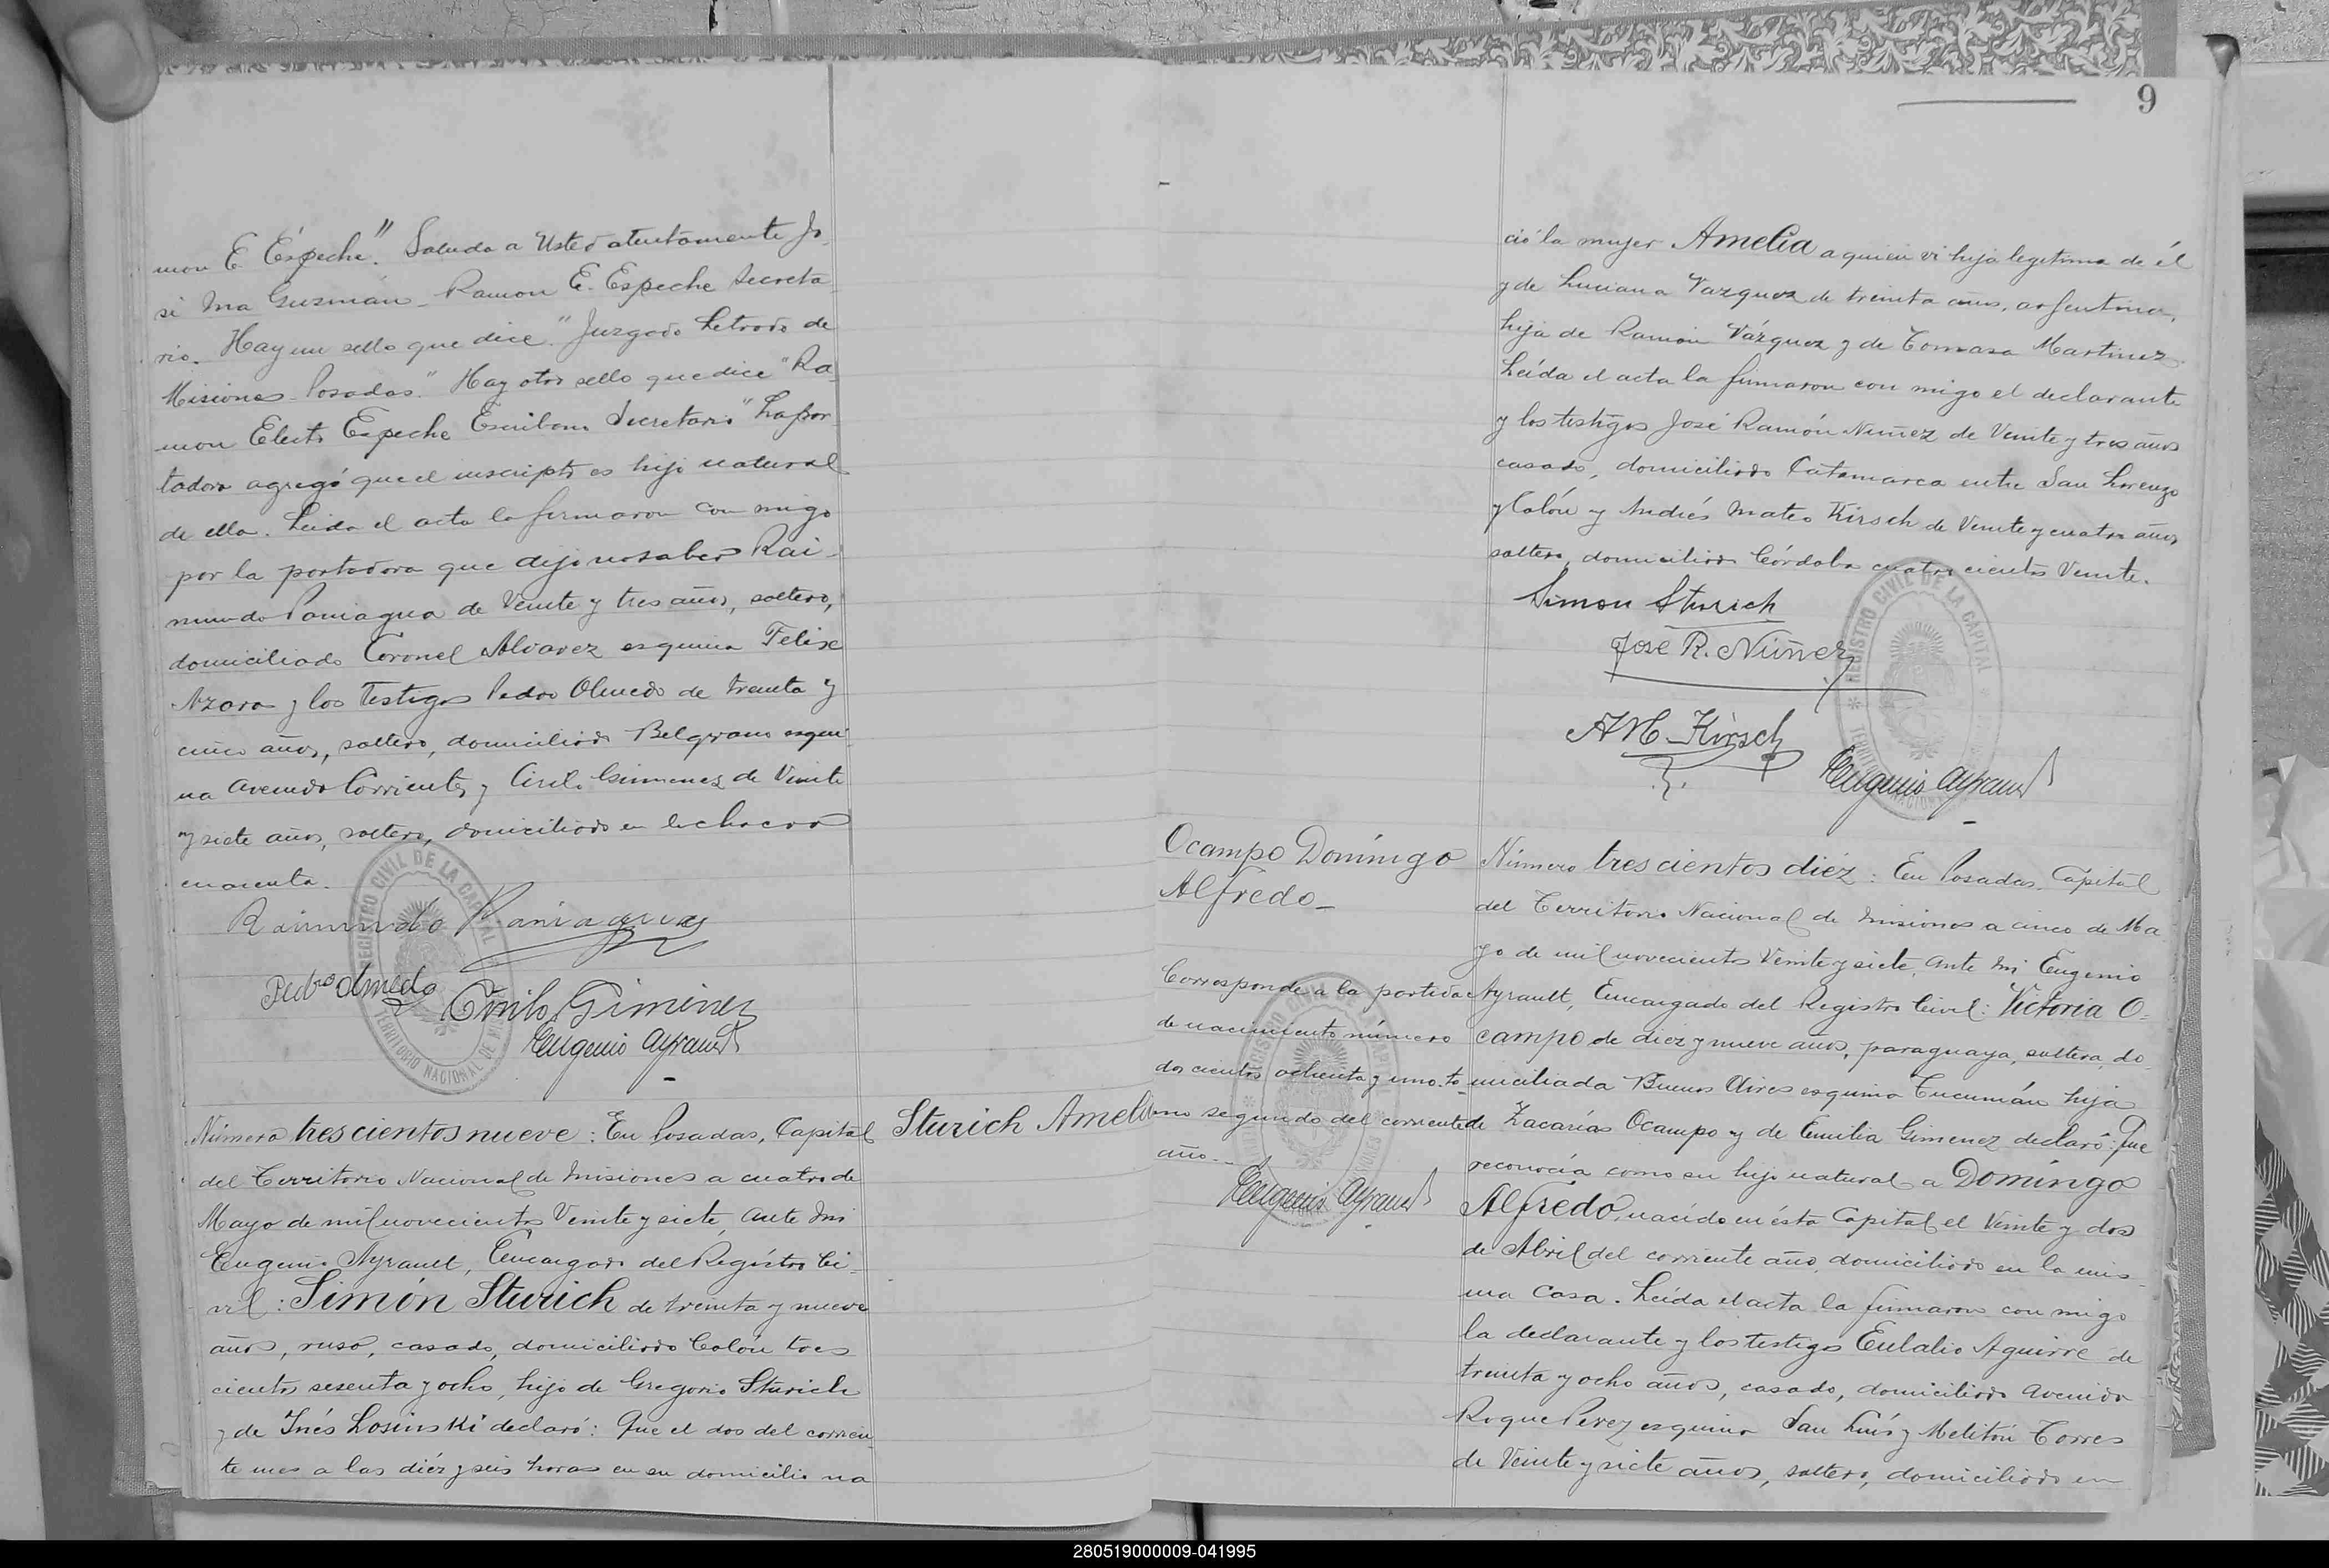 mon E. Espeche." Saluda a Usted atentamente Jo
sé Ma Guzmán - Ramon E. Espeche Secreta
rio. Hay un sello que dice "Juzgado Letrado de
Misiones - Posadas." Hay otro sello que dice "Ra
mon Electo Espeche Escribano Secretario" La por
tadora agregó que el inscripto es hijo natural
de ella. Leida el acta la firmaron con migo
por la portadora que dijo no saber Rai-
mundo Paniagua de Veinte y tres años, soltero,
domiciliado Coronel Alvarez esquina Felix
Azara y los Testigos Pedro Olmedo de treinta y
cinco años, soltero, domiciliado Belgrano esqui
na Avenida Corrientes y Cirilo Gimenez de Veinte
y siete años, soltero, domiciliado en la chacra
cuarenta.
Raimundo Paniagua
Pedro Olmedo
Cirilo Giminez
Eugenio Ayrault
REGISTRO CIVIL DE LA CAPITAL
TERRITORIO NACIONAL DE MISIONES
Sturich Amelia
Número tres cientos nueve: En Posadas, Capital
del Territorio Nacional de Misiones a cuatro de
Mayo de mil novecientos Veinte y siete, ante mi
Eugenio Ayrault, Encargado del Registro Ci-
vil: Simón Sturich de treinta y nueve
años, ruso, casado, domiciliado Colón tres
cientos sesenta y ocho, hijo de Gregorio Sturich
y de Inés Losinski declaró: Que el dos del corrien
te mes a las diéz y seis horas en su domicilio na
9
ció la mujer Amelia a quien vi hija legitima de él
y de Luciana Vazquez de treinta años, argentina,
hija de Ramón Vázquez y de Tomasa Martinez.
Leída el acta la firmaron con migo el declarante
y los testigos José Ramón Nuñez de Veinte y tres años
casado, domiciliado Catamarca entre San Lorenzo
y Colón y Andrés Mateo Kirsch de Veinte y cuatro años
soltero, domiciliado Córdoba cuatro cientos Veinte.
Simon Sturich
Jose R. Nuñez
A M. Kirsch
Eugenio Ayrault
REGISTRO CIVIL DE LA CAPITAL
Ocampo Domingo
Alfredo_
Corresponde a la partida
de nacimiento número
dos cientos ochenta y uno to
mo segundo del corriente
año.
Eugenio Ayrault
Número tres cientos diéz: En Posadas, Capital
del Territorio Nacional de Misiones a cinco de Ma
yo de mil novecientos Veinte y siete, ante mi Eugenio
Ayrault, Encargado del Registro Civil: Victoria O=
campo de diez y nueve años, paraguaya, soltera, do
miciliada Buenos Aires esquina Tucumán hija
de Zacarías Ocampo y de Emilia Gimenez declaró: Que
reconocía como su hijo natural a Domingo
Alfredo, nacido en ésta Capital el Veinte y dos
de Abril del corriente año, domiciliado en la mis-
ma casa. Leída el acta la firmaron con migo
la declarante y los testigos Eulalio Aguirre de
treinta y ocho años, casado, domiciliado Avenida
Roque Perez esquina San Luis y Melitón Torres
de Veinte y siete años, soltero, domiciliado en
280519000009-041995